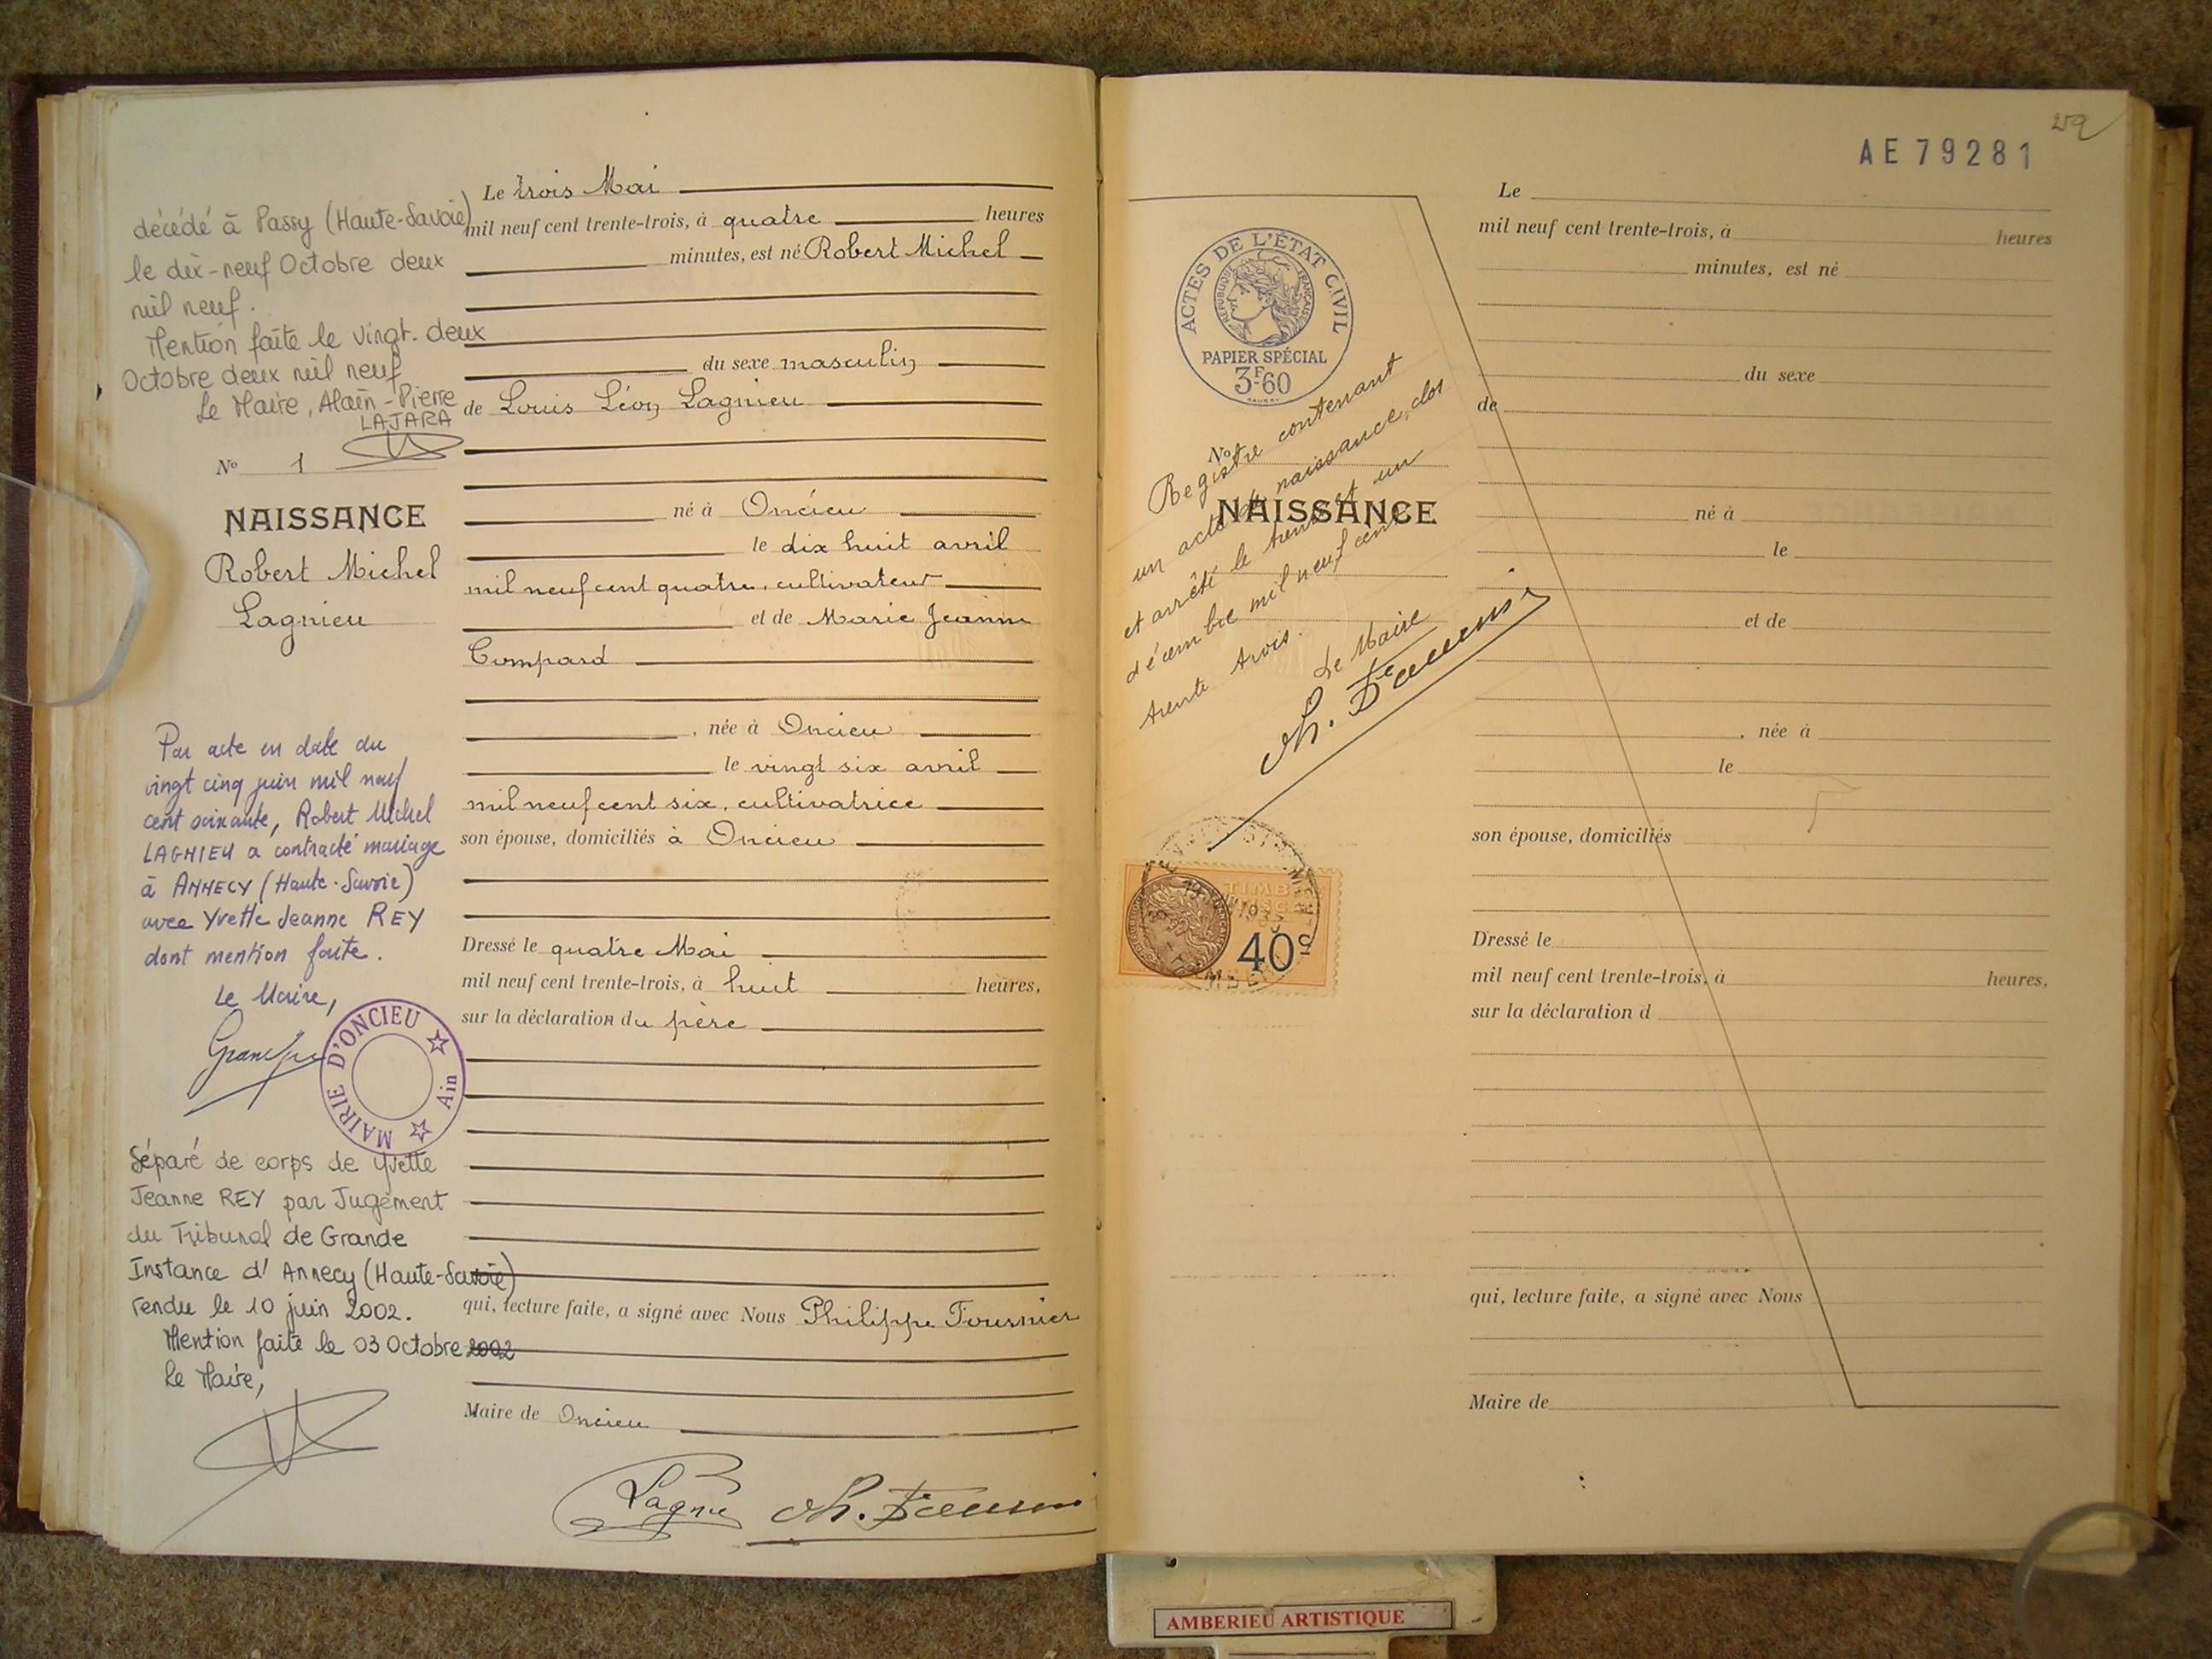 décédé à Passy (Haute-Savoie)
le dix-neuf Octobre deux
mil neuf.
Mention faite le vingt-deux
Octobre deux mil neuf
Le Maire, Alain-Pierre
LAJARA
No 1
NAISSANCE
Robert Michel
Lagnieu
Par acte en date du
vingt cinq juin mil neuf
cent soixante, Robert Michel
LAGNIEU a contracté mariage
à ANNECY (Haute-Savoie)
avec Yvette Jeanne REY
dont mention faite.
Le Maire,
MAIRIE D'ONCIEU
Ain
Séparé de corps de Yvette
Jeanne REY par Jugement
du Tribunal de Grande
Instance d'Annecy (Haute-Savoie)
rendu le 10 juin 2002.
Mention faite le 03 Octobre 2002
Le Maire,
Le trois Mai
mil neuf cent trente-trois, à quatre heures
minutes, est né Robert Michel
du sexe masculin
de Louis Léon Lagnieu
né à Oncieu
le dix huit avril
mil neuf cent quatre, cultivateur
et de Marie Jeanne
Compard
, née à Oncieu
le vingt six avril
mil neuf cent six, cultivatrice
son épouse, domiciliés à Oncieu
Dressé le quatre Mai
mil neuf cent trente-trois, à huit heures,
sur la déclaration du père
qui, lecture faite, a signé avec Nous Philippe Fournier
Maire de Oncieu
Lagnieu
AE 79281
ACTES DE L'ÉTAT CIVIL
RÉPUBLIQUE FRANÇAISE
PAPIER SPÉCIAL
3F60
No
NAISSANCE
Registre contenant
un acte de naissance, clos
et arrêté le trente et un
décembre mil neuf cent
trente trois.
Le Maire
TIMBRE
FISCAL
40c
Le
mil neuf cent trente-trois, à heures
minutes, est né
du sexe
de
né à
le
et de
, née à
le
son épouse, domiciliés
Dressé le
mil neuf cent trente-trois, à heures,
sur la déclaration d
qui, lecture faite, a signé avec Nous
Maire de
AMBERIEU ARTISTIQUE